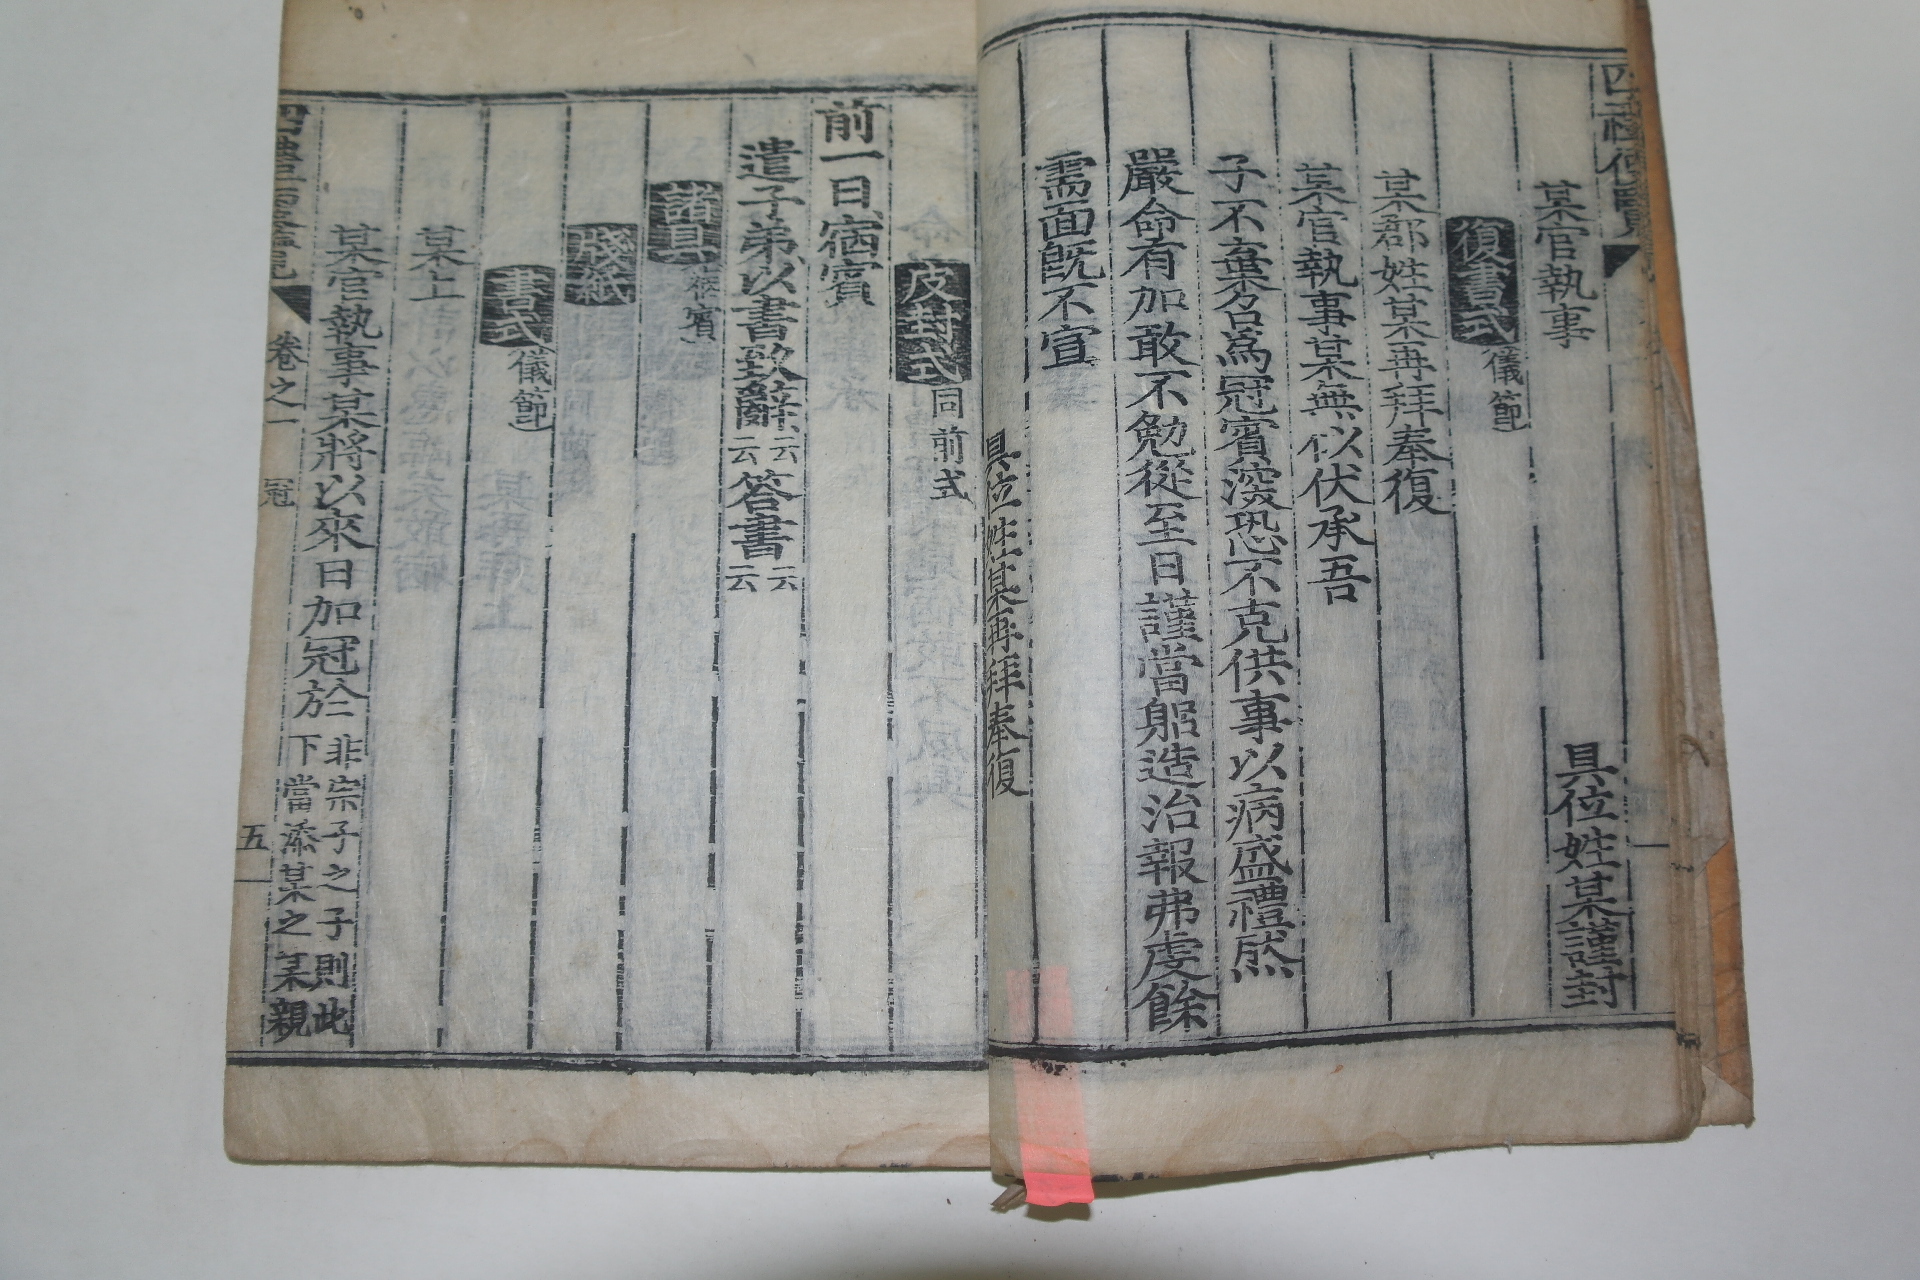 四禮便覽
某官執事
具位姓某謹封
復書式 儀節
某郡姓某再拜奉復
某官執事某無似伏承吾
子不棄召爲冠賓深恐不克供事以病盛禮然
嚴命有加敢不勉從至日謹當躬造治報弗虔餘
需面旣不宣
具位姓某再拜奉復
皮封式 同前式
前一日宿賓
遣子弟以書致辭云云答書云云
諸具 宿賓
牋紙
書式 儀節
某上
某官執事某將以來日加冠於 非宗子之子則此
下當添某之某親
四禮便覽
卷之一
冠
五